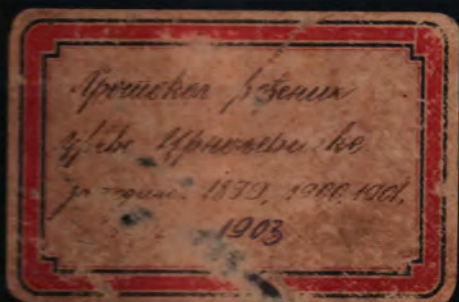 Протокол рођених
цркве Црнољевичке
за године: 1899, 1900, 1901,
1903